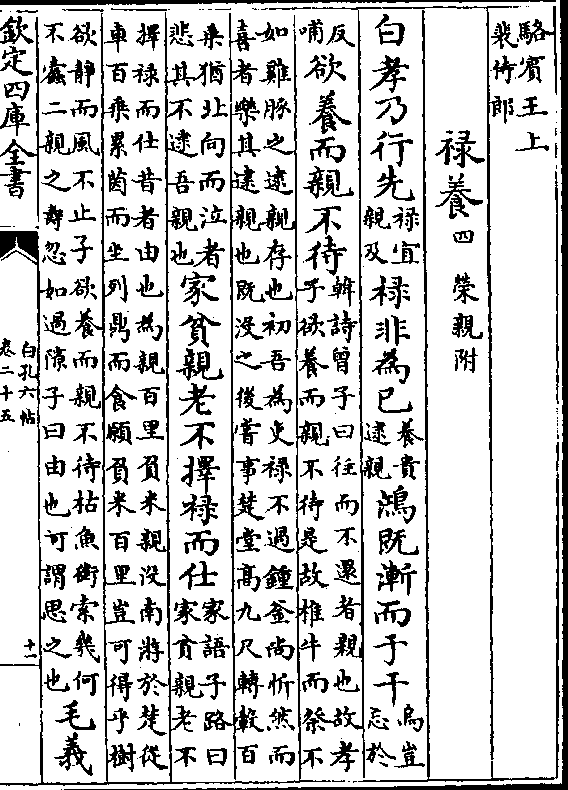 駱賓王上
裴侍郎
禄養四 榮親附
白孝乃行先禄宜親及禄非為已養貴逮親鴻既漸而于干烏豈忘於
反哺欲養而親不待韓詩曾子曰往而不還者親也故孝子欲養而親不待是故椎牛而祭不
如雞豚之逮親存也初吾為吏禄不過鍾釜尚忻然而
喜者樂其逮親也既没之後嘗事楚堂髙九尺轉轂百
乘猶北向而泣者悲其不逮吾親也家貧親老不擇禄而仕家語子路曰家貧親老不
擇禄而仕昔者由也為親百里負米親没南將於楚從
車百乘累茵而坐列鼎而食願負米百里豈可得乎樹
欲靜而風不止子欲養而親不待枯魚銜索幾何不蠧二親之壽忽如過隙子曰由也可謂思之也毛義
欽定四庫全書
白孔六帖
卷二十五
十一